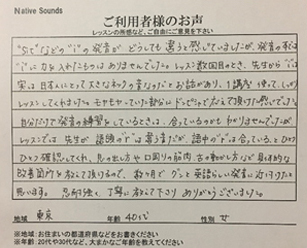 Native Sounds
ご利用者様のお声
レッスンの所感など、ご自由にご意見を下さい
"sit"などの"i"の発音が どうしても 違うと感じていましたが、発音の形は
"i"に力を入れたものはありませんでした。レッスン数回目のとき、先生から"i"は
実は日本人にとって大きなネックの音なのだとお話があり、1講座使って、しっかり
レッスンしてくれました。モヤモヤっていう部分にドンピシャで応えて頂けた感じでした。
自分だけで発音の練習をしているときは、合っているのか分かりませんでしたが、
レッスンでは 先生が 語頭の"i"は違う音だが、語中の"i"は合っている とひとつ
ひとつ確認してくれ、息の出し方や 口周りの筋肉、舌の動かし方など具体的な
改善箇所を教えて頂けるので、数ヶ月で グンと英語らしい発音に近付けたと
思います。忍耐強く、丁寧に教えて下さり ありがとうございました。
地域 東京 年齢 40代 性別 女
※地域:お住まいの都道府県などをお書きください
※年齢:20代や30代など、大まかなご年齢を教えてください